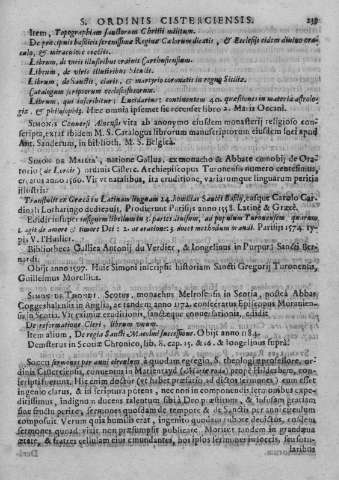 S. ORDINIS CISTERCIENSIS.
Item, Topographiam sanctorum Christi militum.
De præcipuis basilicis serenissimæ Reginæ Cælorum dicatis, & Ecclesiis eidem divino oraculo, & miraculose erectis.
Librum, de viris illustribus ordinis Carthusiensium.
Librum, de viris illustribus Siciliæ.
Librum, de Sanctis, claris, & martyrio coronatis in regno Siciliæ.
Catalogum scriptorum ecclesiasticorum.
Librum, qui inscribitur; Lucidarius: continentem 40. quæstiones in materia astrologiæ, & philosophiæ. Hæc omnia ipsemet se recenset libro 2. Maris Oceani.
SIMONIS Conversi Alnensis vita ab anonymo ejusdem monasterij religioso conscripta, extat ibidem M. S. Catalogus librorum manuscriptorum ejusdem loci apud Ant. Sanderum, in biblioth. M. S. Belgica.
SIMON DE natione Gallus, ex monacho & Abbate cœnobij de Oratorio ordinis Cisterc. Archiepiscopus Turonensis numero centesimus, creatus anno 1560. Vir ut natalibus, ita eruditione, variarumque linguarum peritia illustris:
Transtulit ex Græca in Latinam linguam 24. homilias Sancti Basilij, easque Carolo Cardinali Lotharingo dedicavit, Prodierunt Parisiis anno 1558. Latinè & Græcè.
Edidit insuper
agit de amore & timore Dei: 2. de oratione: 3. de contemptu mundi. Parisiis 1574. typis V. l'Huilier.
Bibliotheca Gallica Antonij du Verdier, & Longelinus in Purpura Sancti Bernardi.
Obijt anno 1597. Huic Simoni inscripsit historiam Sancti Gregorij Turonensis, Guilielmus Morellius.
SIMON DE Scotus, monachus Melrosensis in Scotia, postea Abbas Coggeshalensis in Anglia, ac tandem anno 1172. consecratur Episcopus Moraviensis in Scotia. Vir eximiæ eruditionis, sanctæque conversationis, edidit
De reformatione Cleri, librum unum.
Item alium, De regio Sancti Malachiæ successione. Obijt anno 1184.
Demsterus in Scotiæ Chronico, lib. 8. cap. 15. & 16. & Longelinus suprà.
SOCCI sermones per anni circulum à quodam egregio, S. theologiæ professore, ordinis Cisterciensis, conventus in Marienrayd (Mariæ rode) propè Hildesheim, conscripti fuerunt. Hic enim doctor (ut habet præfatio ad dictos sermones) cum esset ingenio clarus, & in scriptura potens, nec non in componendis sermonibus expeditissimus, indignum ducens talentum sibi à Deo præstitum, & infusam gratiam sine fructu perire, sermones quosdam de tempore & de Sanctis per anni circulum composuit. Verum quia humilis erat, ingenito quodam rubore deductus, eosdem sermones quoad vixit, non præsumpsit publicare. Moriturus tandem in grandæva ætate, & fratres cellulam ejus emundantes, hos ipsos sermones in soccis, seu